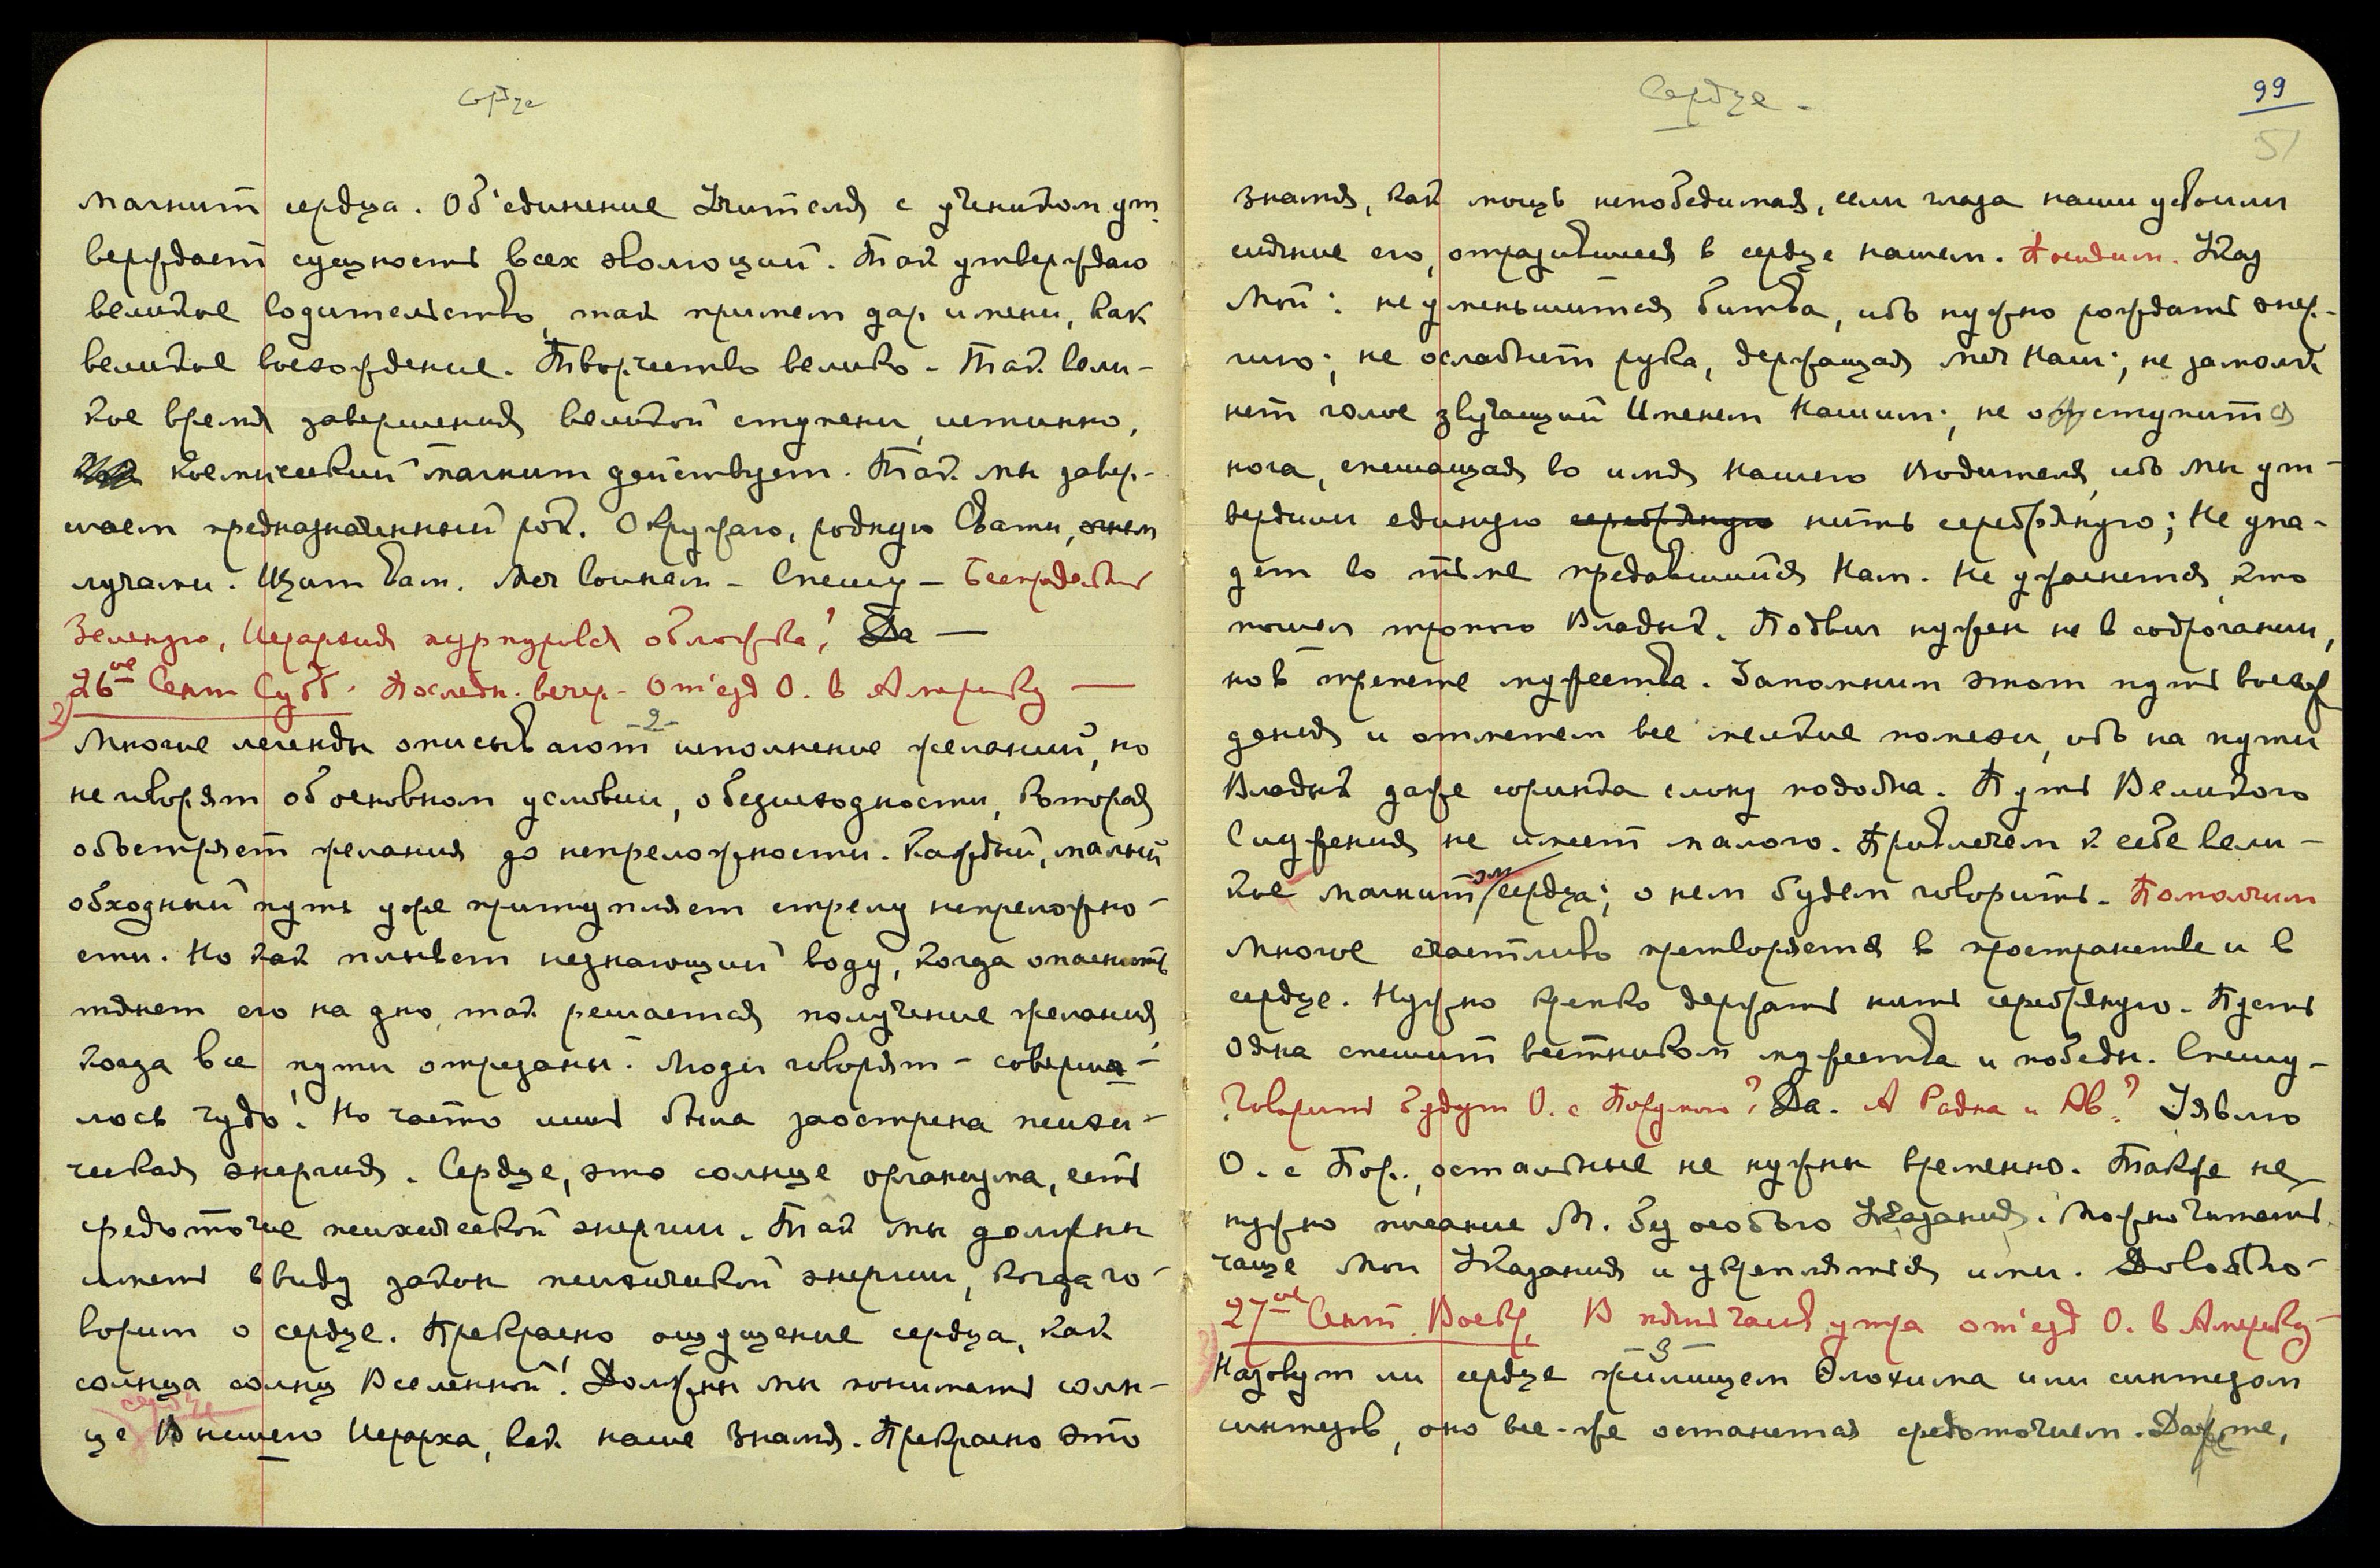 Сердце
магнит сердца. Об'единение Учителя с учеником ут
верждает сущность всех эволюций. Так утверждаю
великое водительство, так примем дар имени, как
великое восхождение. Творчество велико. Так вели-
кое время завершения великой ступени, истинно,
космический магнит действует. Так мы завер-
шаем предназначенный рок. Окружаю, родную Свати, огнем
лучами. Щит вам. Меч воинам – Спешу –
Зеленую, Иерархия пурпуровая обложка? Да —
26ое Сент Субб. Последн. вечер – От'езд О. в Америку —
2)
-2-
Многие легенды описывают исполнение желаний, но
не говорят об основном условии, о безысходности, которая
обостряет желания до непреложности. Каждый, малый
обходный путь уже притупляет стрелу непреложно-
сти. Но как плывет незнающий воду, когда опасность
тянет его на дно, так решается получение желания,
когда все пути отрезаны. Люди говорят – соверши-
лось чудо! Но часто лишь была заострена психи-
ческая энергия. Сердце, это солнце организма, есть
средоточие психической энергии. Так мы должны
иметь ввиду закон психической энергии, когда го-
ворим о сердце. Прекрасно ощущение сердца, как
солнца солнц Вселенной! Должны мы понимать солн-
сердце
це Вышнего Иерарха, как наше Знамя. Прекрасно это
Сердце.
99
51
знамя, как мощь непобедимая, если глаза наши усвоили
сияние его, отразившееся в сердце нашем. Посидим. Указ
Мой: не уменьшится битва, ибо нужно рождать энер-
гию; не ослабнет рука, держащая меч Наш; не замолк
нет голос звучащий Именем Нашим; не оступится
нога, спешащая во имя Нашего Водителя, ибо мы ут-
вердили единую серебряную нить серебряную; Не упа-
дет во тьме предавшийся Нам. Не ужаснется, кто
пошел тропою Владык. Подвиг нужен не в содрогании,
но в трепете мужества. Запомним этот путь восхож
дения и отметем все мелкие помехи, ибо на пути
Владык даже соринка слону подобна. Путь Великого
Служения не имеет малого. Привлечем к себе вели-
кое магнитом сердца; о нем будем говорить. Помолчим
Многое счастливо претворяется в пространстве и в
сердце. Нужно крепко держать нить серебряную. Пусть
Одна спешит вестником мужества и победы. Спешу –
Говорить будут О. с Порумою? Да. А Радна и Ав.? Явлю
О. с Пор., остальные не нужны временно. Также не
нужно писание М. без особого Указания. Можно читать
чаще Мои Указания и укрепляться ими. Довольно –
27ое Сент. Воскр. В пять часов утра от'езд О. в Америку –
-3-
Назовут ли сердце жилищем Элохима или синтезом
синтезов, оно все-же останется средоточием. Даже те,